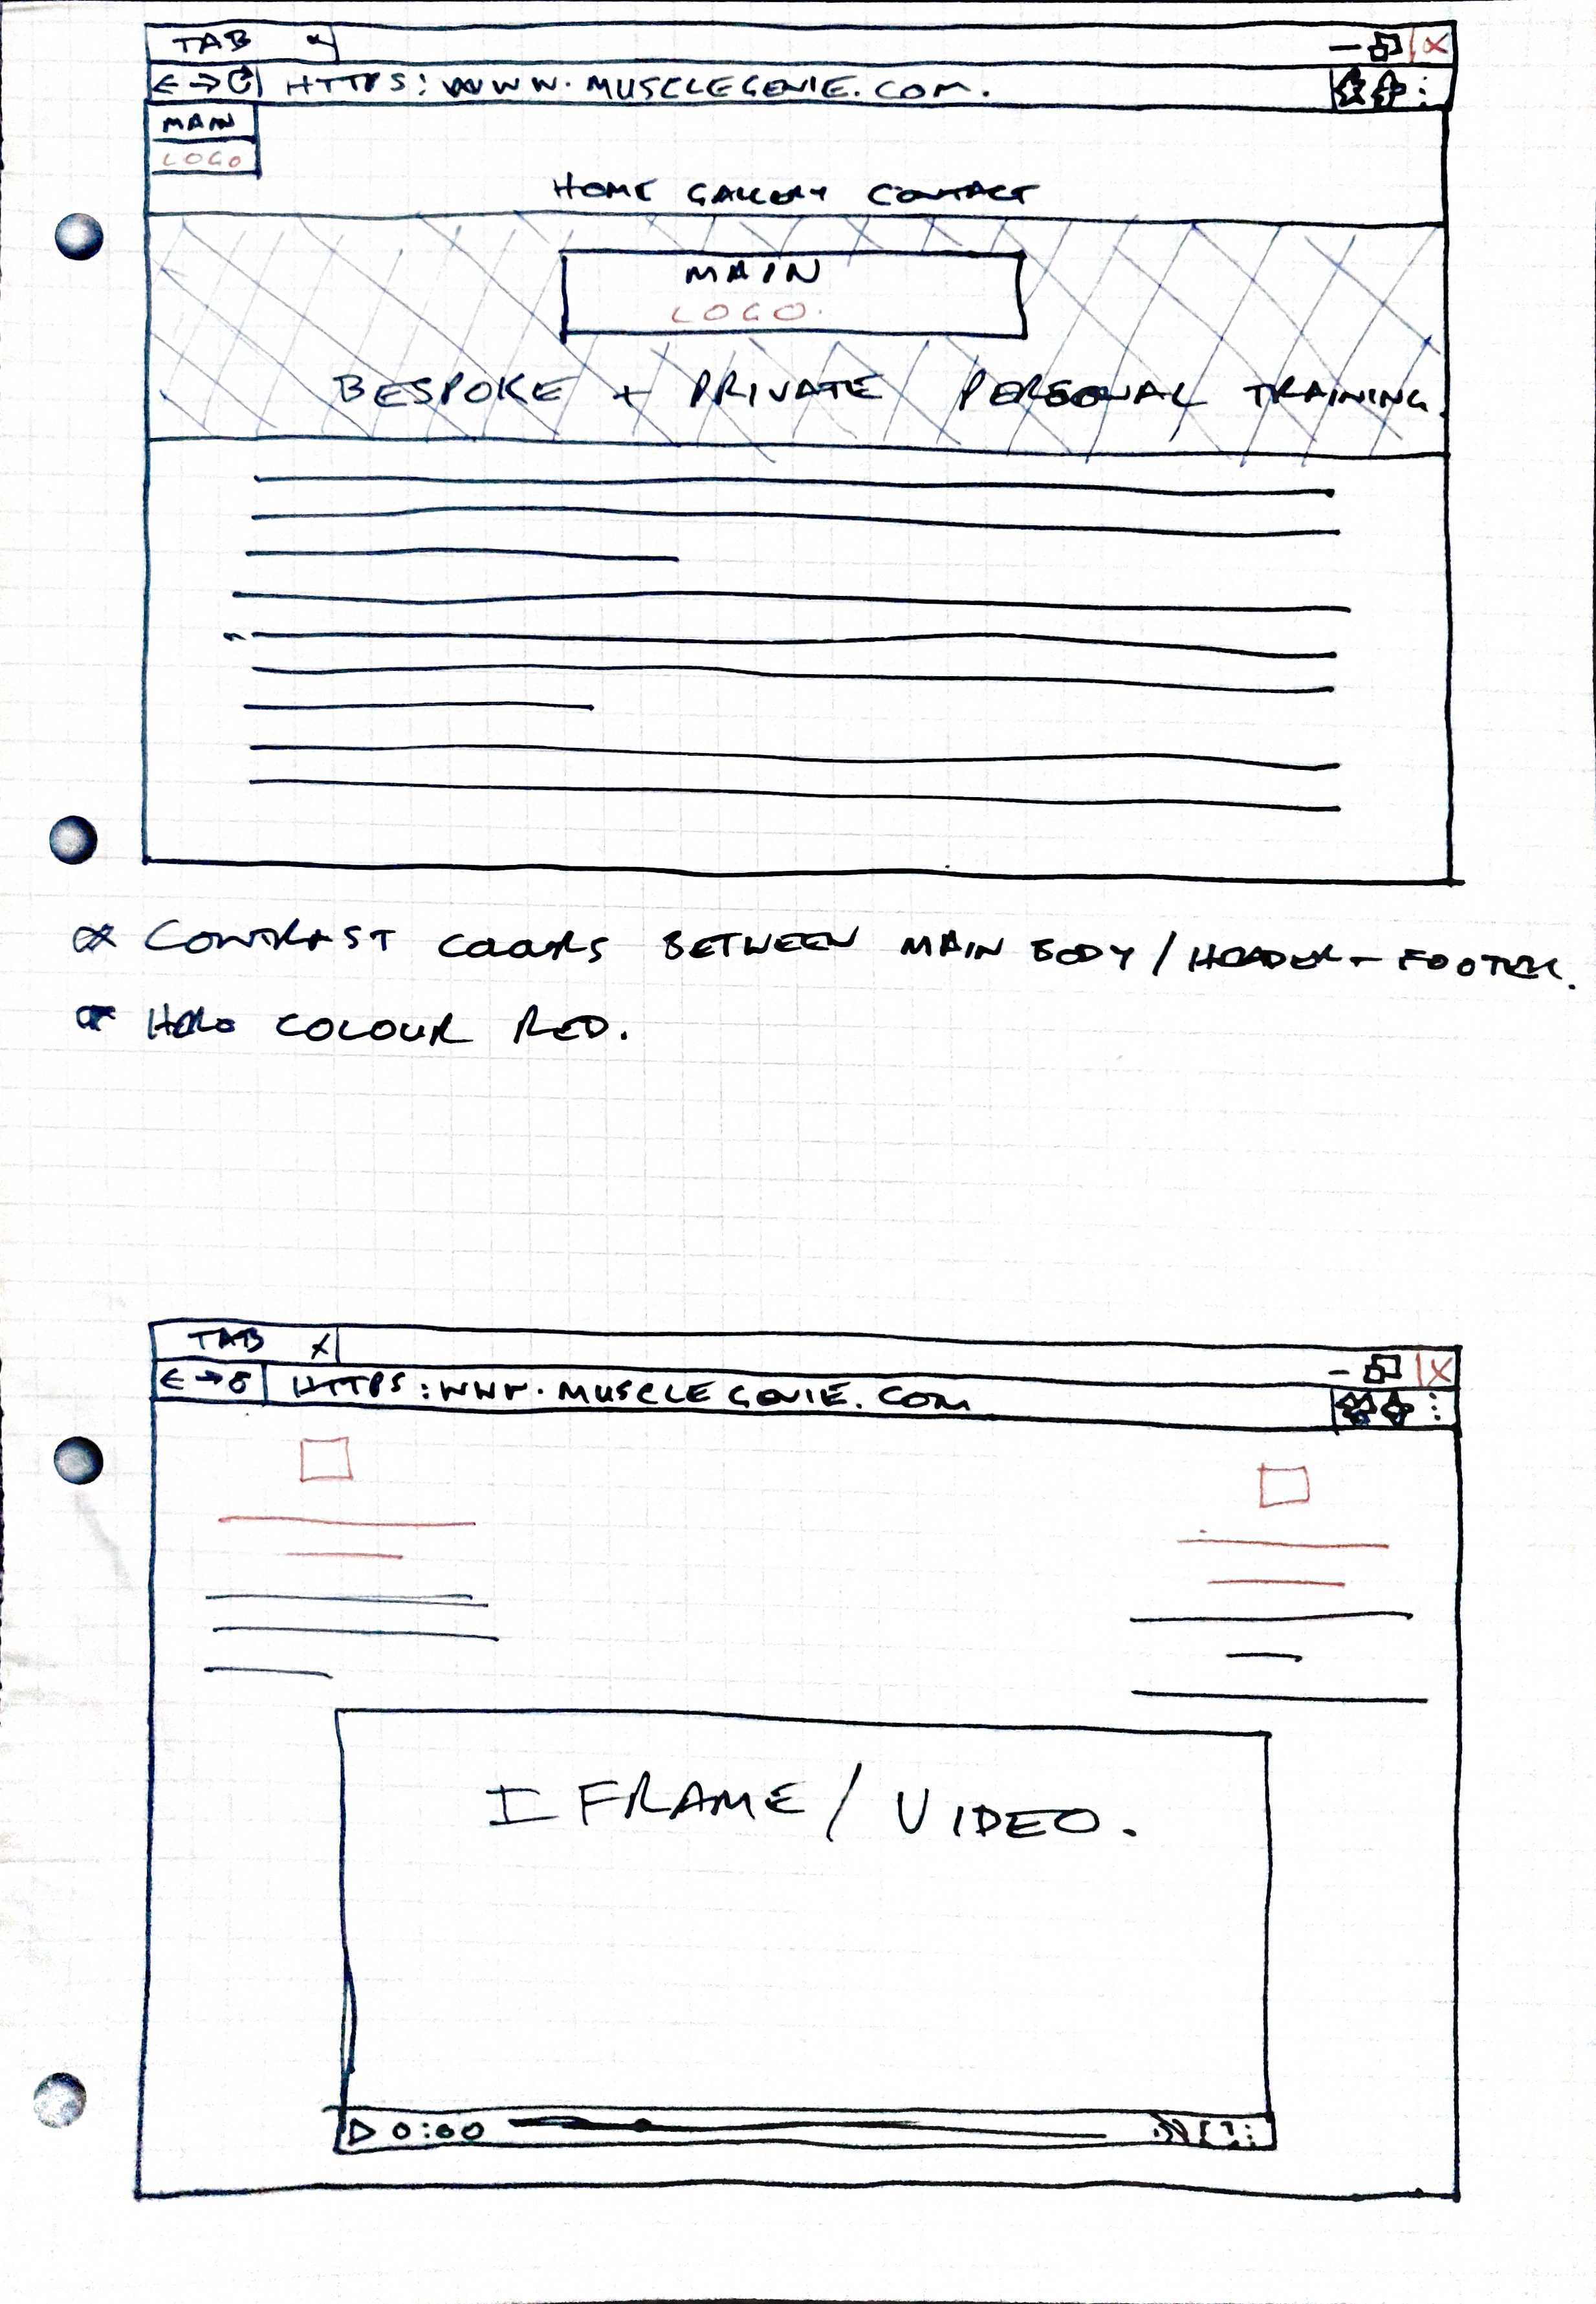 TAB x
HTTPS: WWW.MUSCLEGENIE.COM.
MAIN
LOGO
HOME GALLERY CONTACT
MAIN
LOGO.
BESPOKE + PRIVATE PERSONAL TRAINING.
* CONTRAST COLOURS BETWEEN MAIN BODY / HEADER + FOOTER.
* HERO COLOUR RED.
TAB X
HTTPS:WWW.MUSCLEGENIE.COM
I FRAME / VIDEO.
0:00